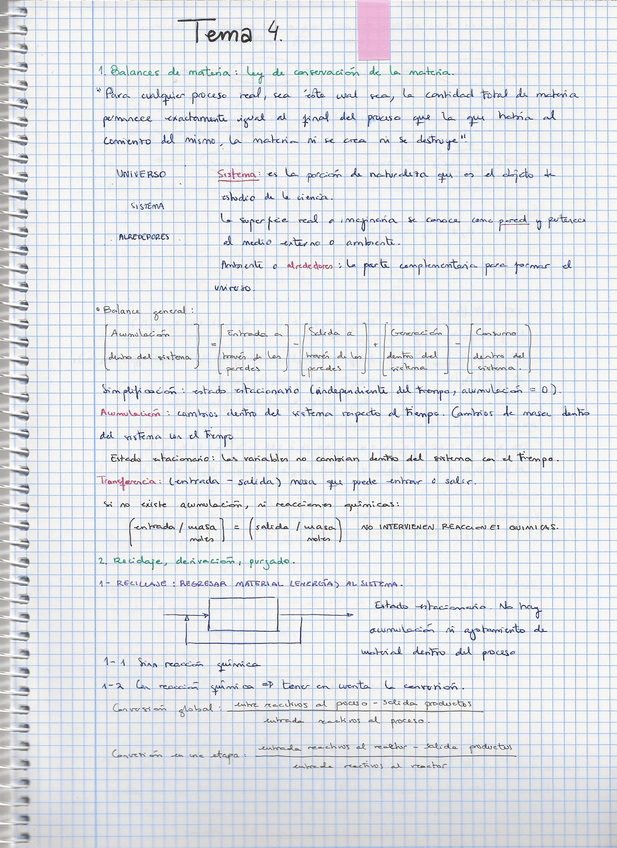 Tema 4.
1. Balances de materia: ley de conservación de la materia.
"Para cualquier proceso real, sea éste cual sea, la cantidad total de materia
permanece exactamente igual al final del proceso que la que había al
comienzo del mismo, la materia ni se crea ni se destruye"
UNIVERSO
SISTEMA
ALREDEDORES
Sistema: es la porción de naturaleza que es el objeto de
estudio de la ciencia.
La superficie real o imaginaria se conoce como pared y pertenece
al medio externo o ambiente.
Ambiente o alrededores: la parte complementaria para formar el
universo.
• Balance general:
[Acumulación dentro del sistema] = [Entrada a través de las paredes] - [Salida a través de las paredes] + [Generación dentro del sistema] - [Consumo dentro del sistema.]
Simplificación: estado estacionario (independiente del tiempo, acumulación = 0).
Acumulación: cambios dentro del sistema respecto al tiempo. Cambios de masa dentro
del sistema con el tiempo
Estado estacionario: las variables no cambian dentro del sistema con el tiempo.
Transferencia: (entrada - salida) masa que puede entrar o salir.
Si no existe acumulación, ni reacciones químicas:
(entrada / masa moles) = (salida / masa moles) NO INTERVIENEN REACCIONES QUIMICAS.
2. Reciclaje, derivación, purgado.
1- RECICLAJE: REGRESAR MATERIAL (ENERGÍA) AL SISTEMA.
Estado estacionario. No hay
acumulación ni agotamiento de
material dentro del proceso
1-1 Sinn reacción química
1-2 Con reacción química ⇒ tener en cuenta la conversión.
Conversión global: entre reactivos al proceso - salida productos
entrada reactivos al proceso.
Conversión en una etapa: entrada reactivos al reactor - salida productos
entrada reactivos al reactor